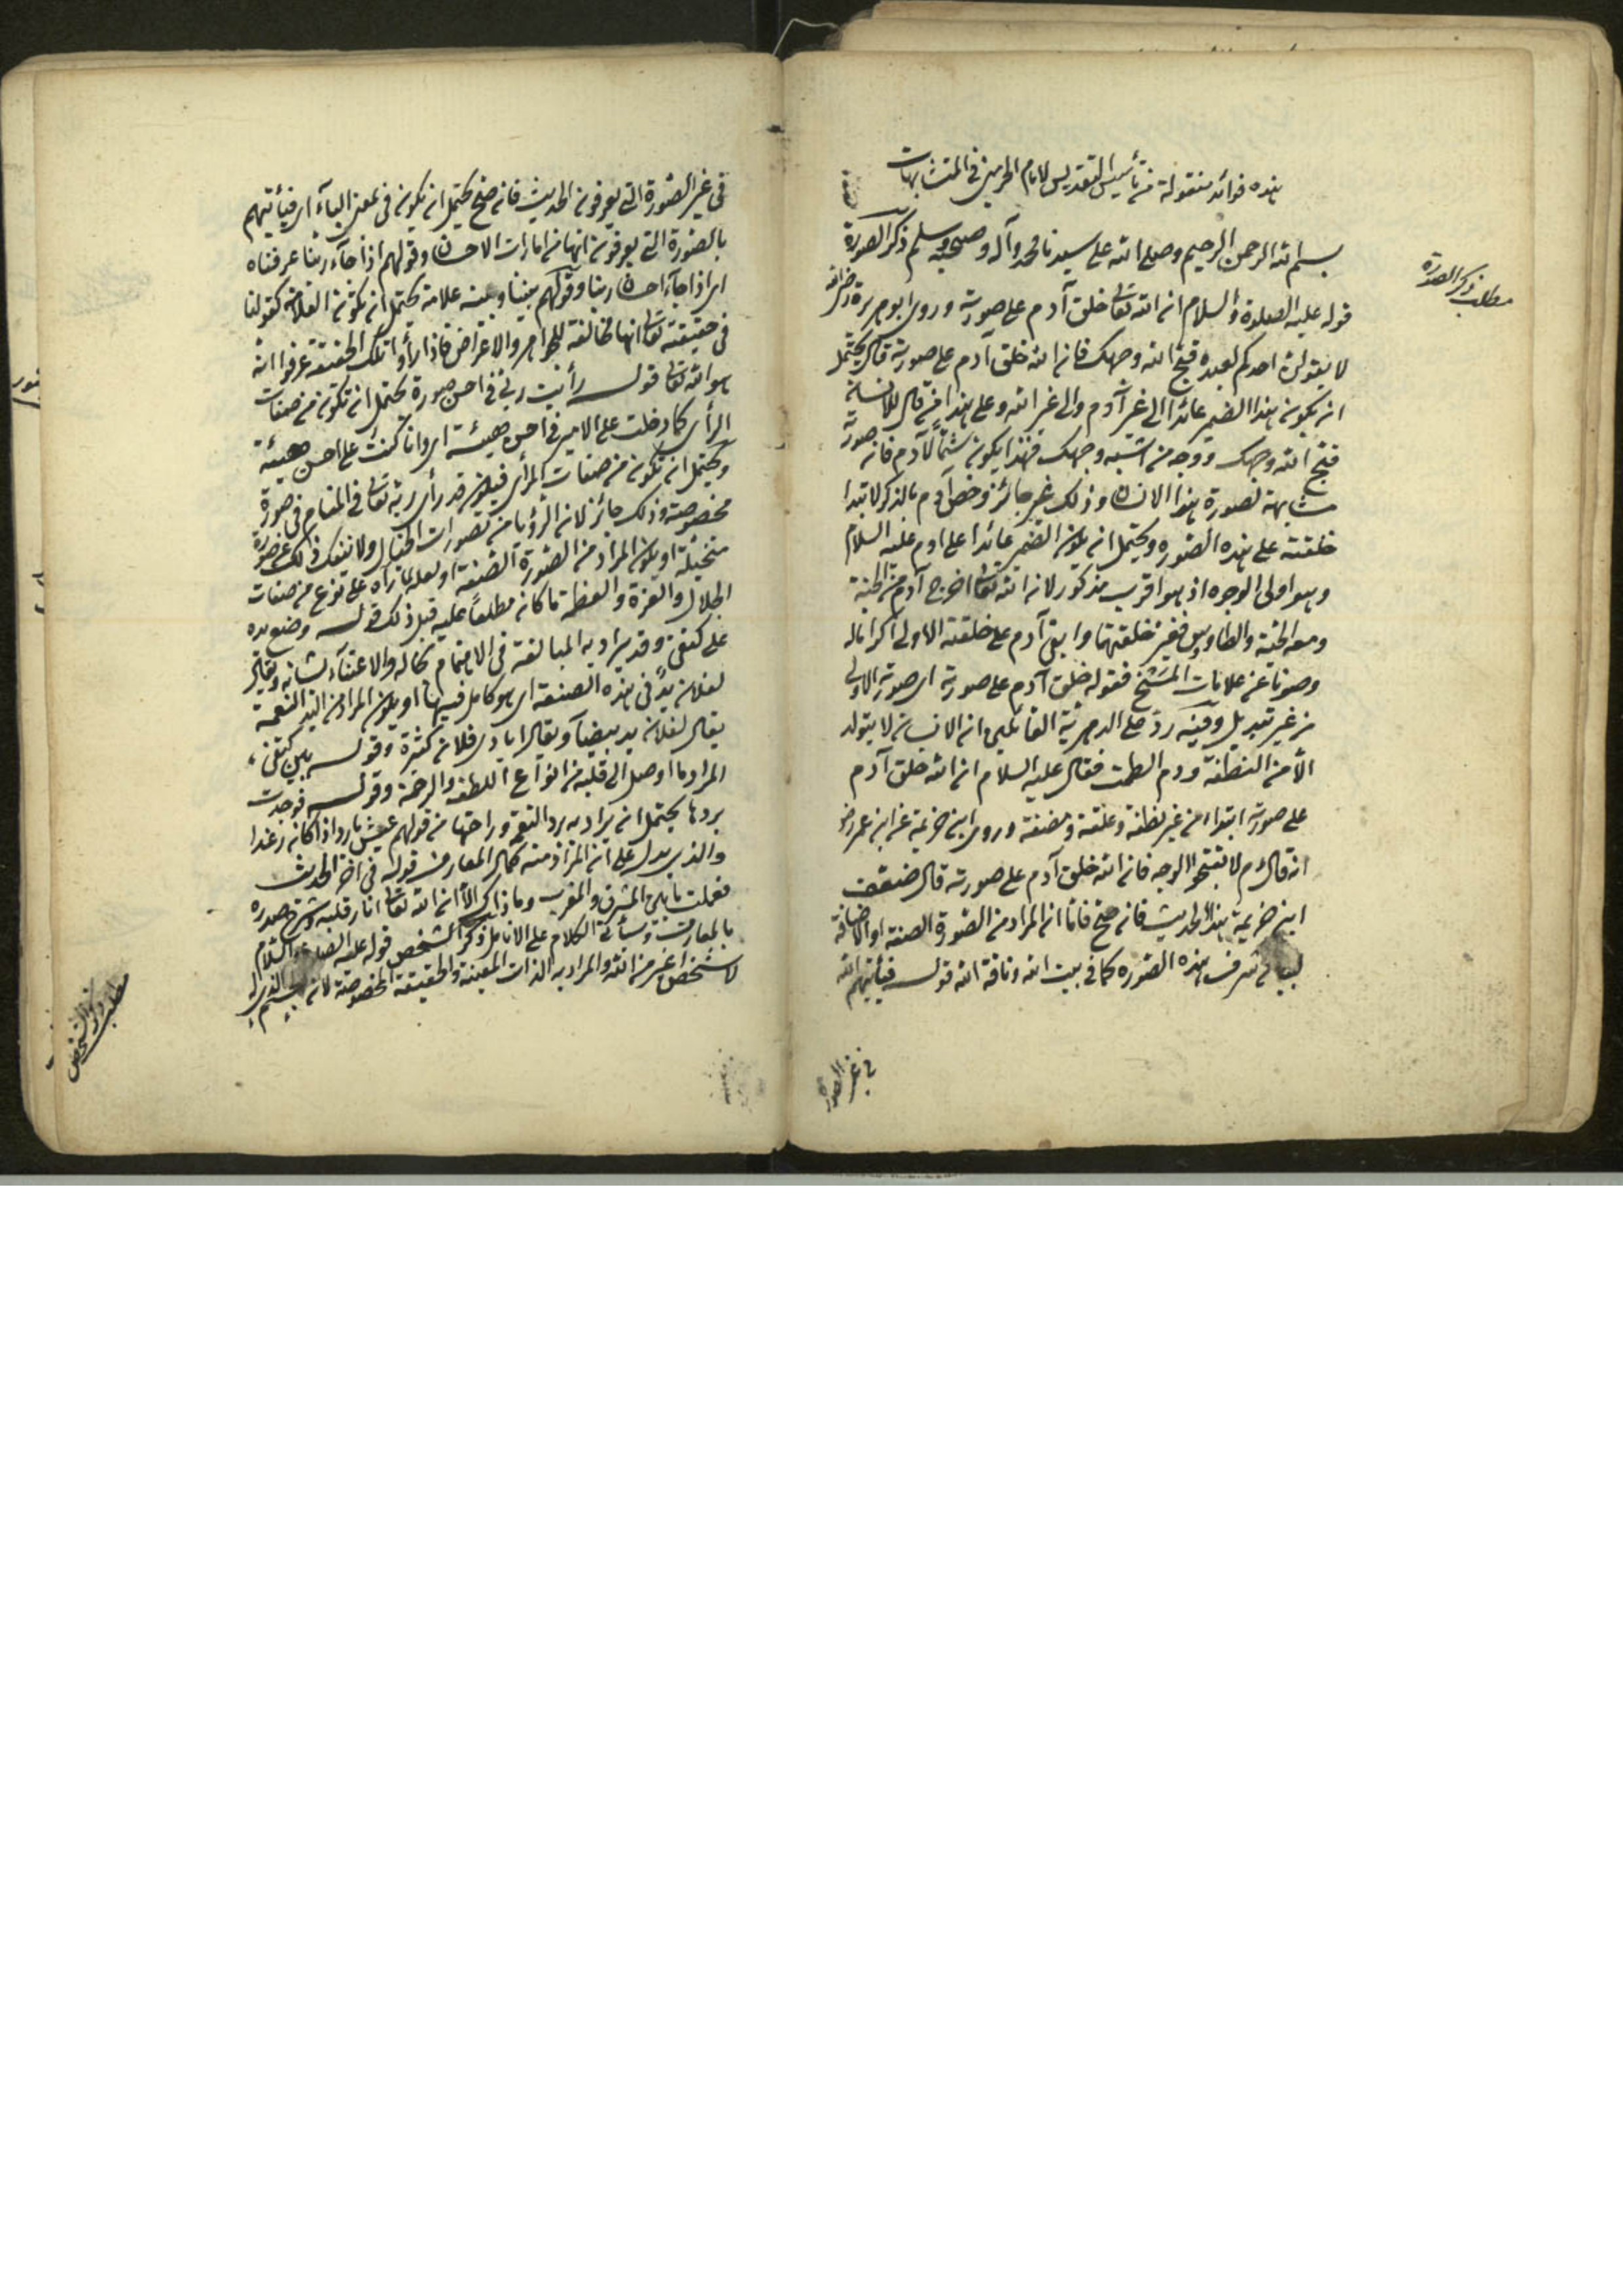 هذه فوائد منقولة من تأسيس التقديس لامام الحرمين في المتشابهات
بسم الله الرحمن الرحيم وصلى الله على سيدنا محمد وآله وصحبه وسلم ذكر الصورة
مطلب ذكر الصورة
قوله عليه الصلوة والسلام ان الله تعالى خلق آدم على صورته وروى ابو هريرة رضي الله
لا يقولن احدكم لعبده قبح الله وجهك فان الله خلق آدم على صورته قال يحتمل
ان يكون هذا الضمير عائدا الى غير آدم والى غير الله وعلى هذا من قال للانسان
قبح الله وجهك ووجه من اشبه وجهك فهذا يكون شتما لآدم فان صورته
مشابهة لصورة هذا الانسان وذلك غير جائز وخص آدم بالذكر لابتدا
خلقته على هذه الصورة ويحتمل ان يكون الضمير عائدا على ادم عليه السلام
وهو اولى الوجوه اذ هو اقرب مذكور لان الله تعالى اخرج آدم من الجنة
ومعه الحية والطاوس فغير خلقتهما وابقى آدم على خلقته الاولى اكراما له
وصونا عن علامات المسخ فقوله خلق آدم على صورته اى صورته الاولى
من غير تبديل وفيه رد على الدهرية القائلين ان الانسان لا يتولد
الا من النطفة ودم الطمث فقال عليه السلام ان الله خلق آدم
على صورته ابتداء من غير نطفة وعلقة ومضغة وروى ابن خزيمة عن ابن عمر رض
انه قال م لا تقبحوا الوجه فان الله خلق آدم على صورته قال ضعف
ابن خزيمة هذا الحديث فان صح فاما ان المراد من الصورة الصفة او الاضافة
لبيان شرف هذه الصورة كما في بيت الله وناقة الله قوله فيأتيهم الله
في غير الصورة
في غير الصورة التي يعرفون الحديث فان صح يحتمل ان يكون في بمعنى الباء اى فيأتيهم
بالصورة التي يعرفون انها من امارات الاحسان وقولهم اذا جاء ربنا عرفناه
اى اذا جاء احسان ربنا وقولهم بيننا وبينه علامة يحتمل ان يكون العلامة كقولنا
في حقيقته تعالى انها مخالفة للجواهر والاعراض فاذا رأوا تلك الحقيقة عرفوا انه
هو الله تعالى قوله رأيت ربي في احسن صورة يحتمل ان تكون من صفات
الرائى كما دخلت على الامير في احسن هيئة اى وانا كنت على احسن هيئة
ويحتمل ان تكون من صفات المرأى فيكون قد رأى ربه تعالى في المنام في صورة
مخصوصة وذلك جائز لان الرؤيا من تصورات الخيال ولا ينفك ذلك عن صورة
متخيلة او يكون المراد من الصورة الصفة او لعله رآه على نوع من صفات
الجلال والعزة والعظمة ما كان مطلعا عليه قبل ذلك قوله وضع يده
على كتفي وقد يراد به المبالغة في الاهتمام بحاله والاعتناء بشانه ويقال
لفلان يد في هذه الصنعة اى هو كامل فيها او يكون المراد من اليد النعمة
يقال لفلان يد بيضاء ويقال ايادى فلان كثيرة وقوله بين كتفي
المراد ما اوصل الى قلبه من انواع اللطف والرحمة وقوله فوجدت
بردها يحتمل ان يراد به برد النعمة وراحتها من قولهم عيش بارد اذا كان رغدا
والذى يدل على ان المراد منه كمال المعارف قوله في اخر الحديث
فعلمت ما بين المشرق والمغرب وما ذاك الا ان الله تعالى انار قلبه وشرح صدره
بالمعارف وسأتي الكلام على الانامل ذكر الشخص قوله عليه الصلوة والسلام
لا شخص اغير من الله والمراد به الذات المعينة والحقيقة المخصوصة لان
مطلب ذكر الشخص